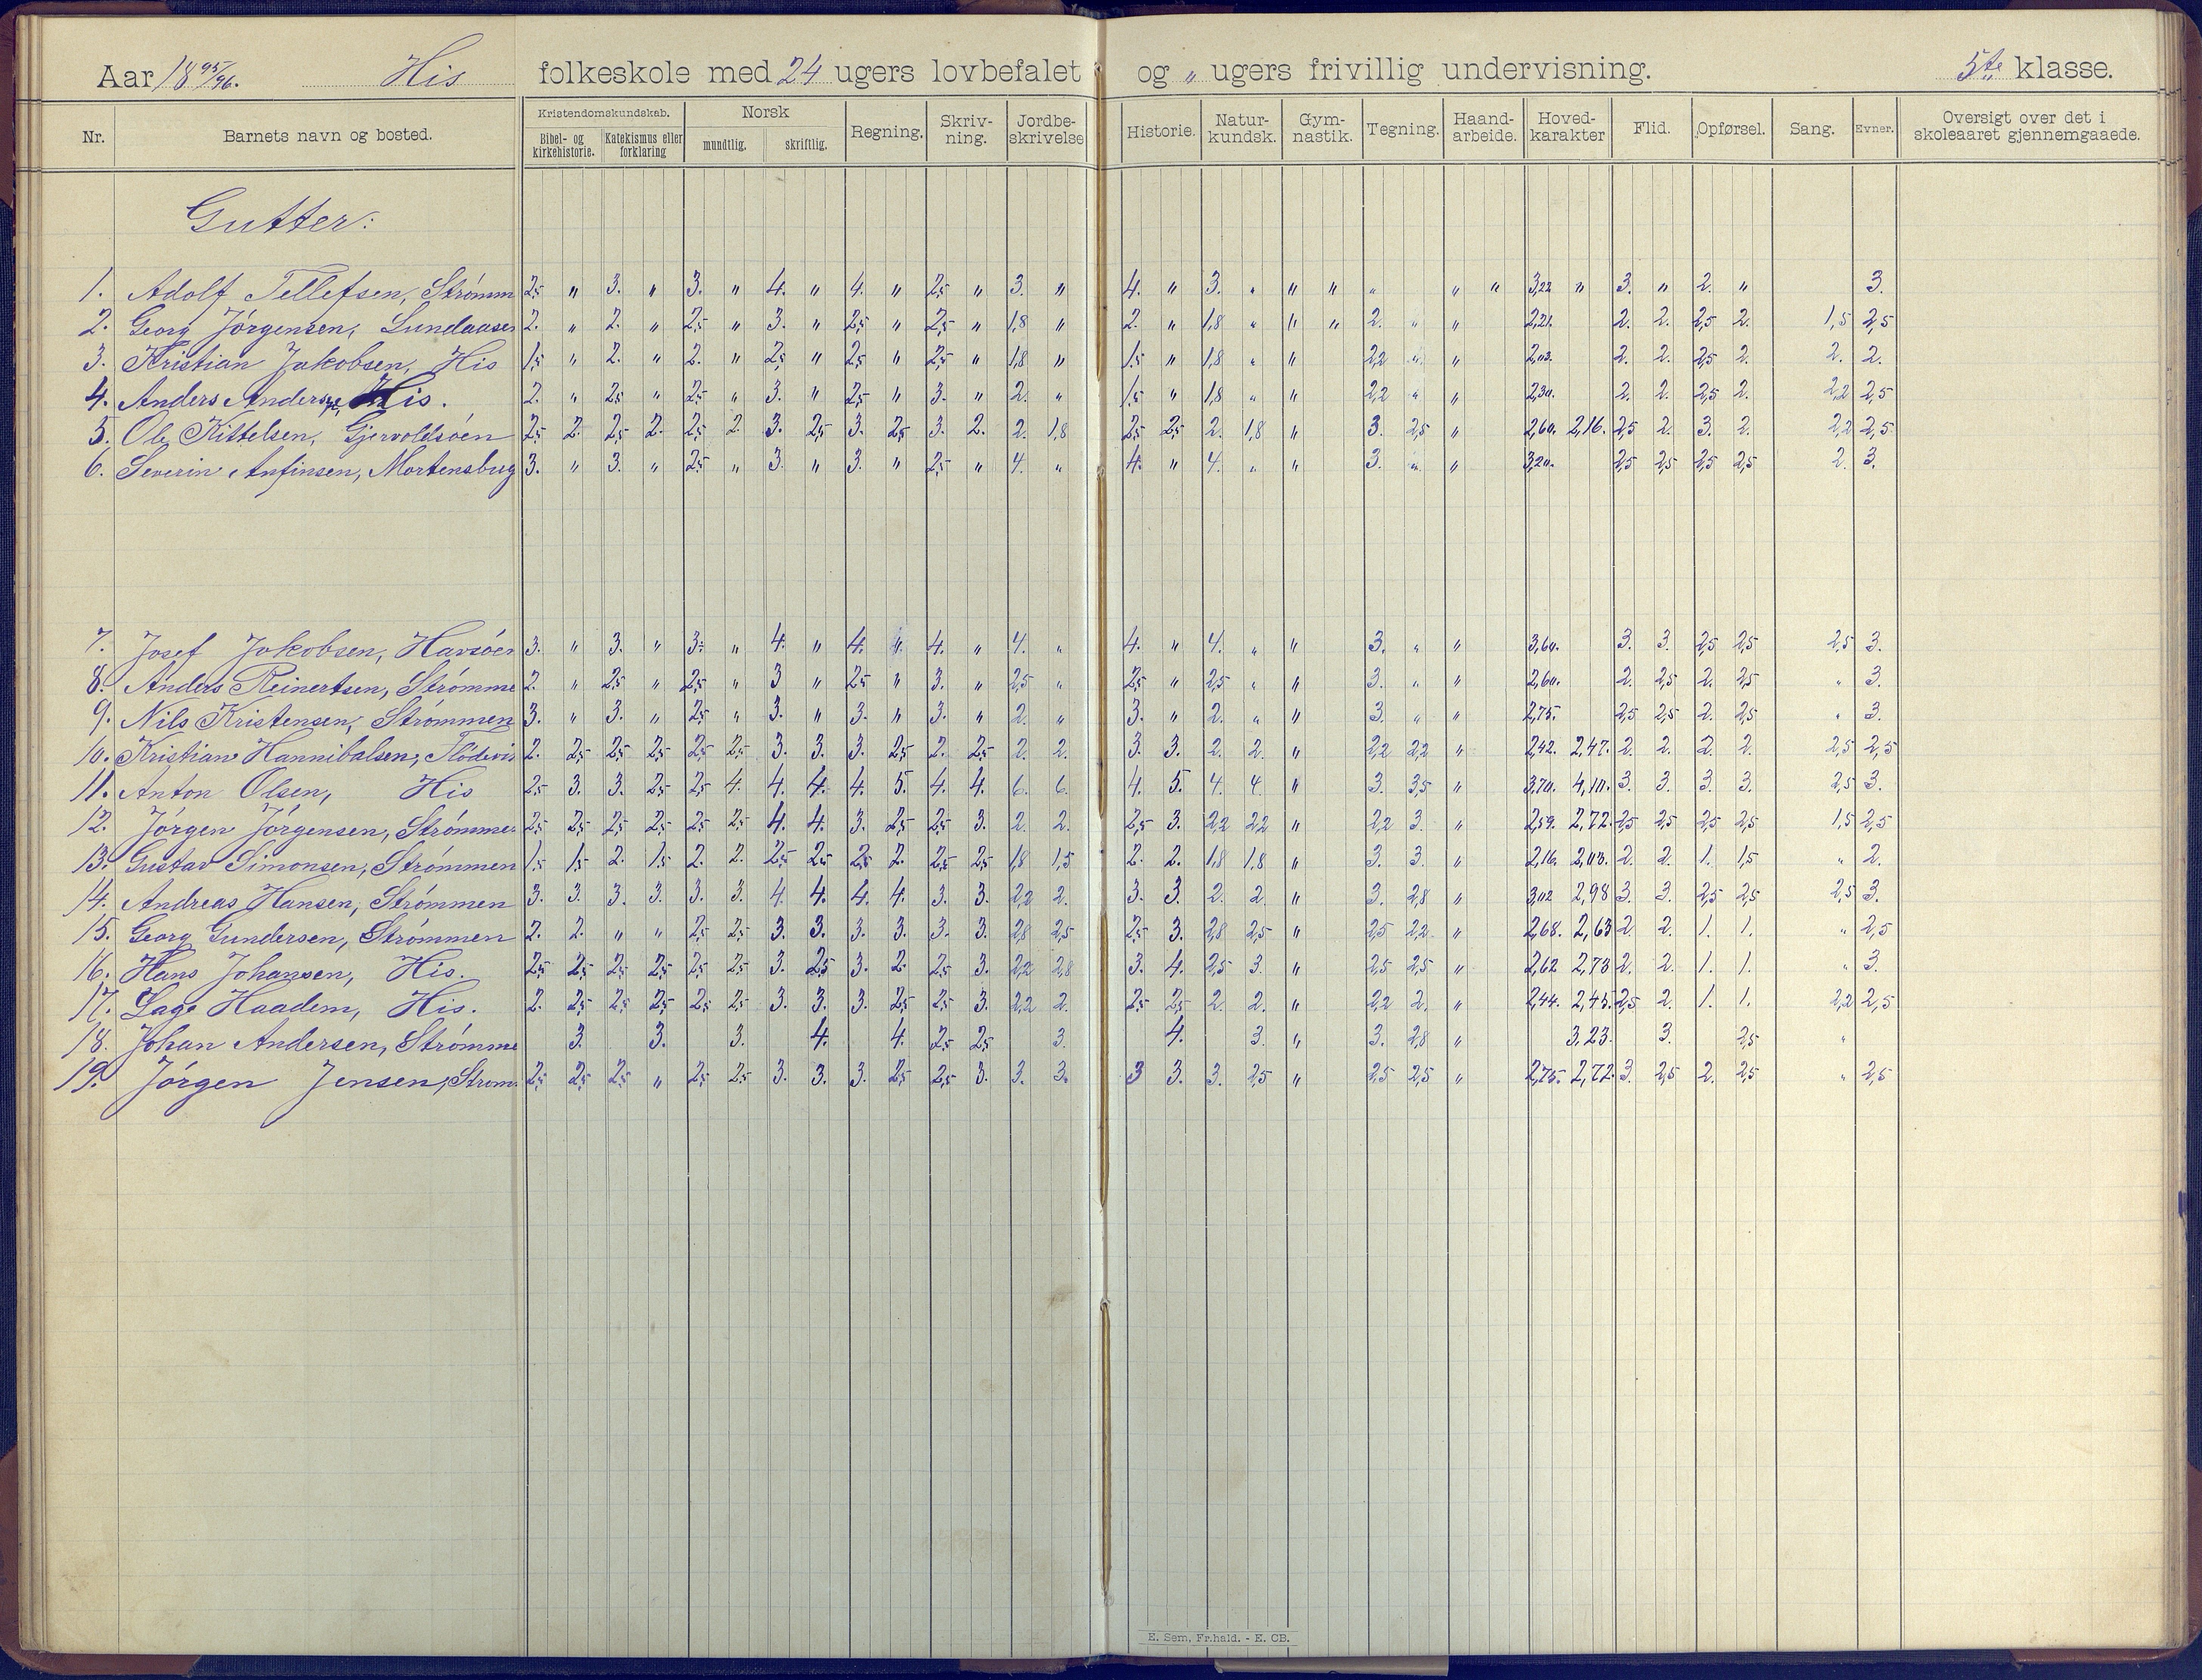 Aar 1895/96. His folkeskole med 24 ugers lovbefalet og " ugers frivillig undervisning. 5te klasse.
Nr. Barnets navn og bosted. Kristendomskundskab. Bibel- og kirkehistorie. Katekismus eller forklaring Norsk mundtlig. skriftlig. Regning. Skriv-ning. Jordbe-skrivelse Historie. Natur-kundsk. Gym-nastik. Tegning. Haand-arbeide. Hoved-karakter Flid. Opførsel. Sang. Evner. Oversigt over det i skoleaaret gjennemgaaede.
Gutter:
1. Adolf Tellefsen, Strömm 2,5 " 3. " 3. " 4. " 4. " 2,5 " 3. " 4. " 3. " " " " " " 3,22 " 3. " 2. " 3.
2. Georg Jörgensen, Lundaasen 2. " 2. " 2,5 " 3. " 2,5 " 2,5 " 1,8 " 2. " 1,8 " " " 2. " " 2,21. 2. 2. 2,5 2. 1,5 2,5
3. Kristian Jakobsen, His 1,5 " 2. " 2. " 2,5 " 2,5 " 2,5 " 1,8 " 1,5 " 1,8 " " 2,2 " " 2,03. 2. 2. 2,5 2. 2. 2.
4. Anders Anders His. 2. " 2,5 " 2,5 " 3. " 2,5 " 3. " 2. " 1,5 " 1,8 " " 2,2 " " 2,30. 2. 2. 2,5 2. 2,2 2,5
5. Ole Kittelsen, Gjervoldsöen 2,5 2. 2,5 2. 2,5 2. 3. 2,5 3. 2,5 3. 2. 2. 1,8 2,5 2,5 2. 1,8 " 3. 2,5 " 2,60. 2,16. 2,5 2. 3. 2. 2,2 2,5
6. Severin Anfinsen, Mortensbug 3. " 3. " 2,5 " 3. " 3. " 2,5 " 4. " 4. " 4. " " 3. " " 3,20. 2,5 2,5 2,5 2,5 2. 3.
7. Josef Jakobsen, Havsöen 3. " 3. " 3. " 4. " 4. " 4. " 4. " 4. " 4. " " 3. " " 3,60. 3. 3. 2,5 2,5 2,5 3.
8. Anders Reinertsen, Strömme 2. " 2,5 " 2,5 " 3 " 2,5 " 3. " 2,5 " 2,5 " 2,5 " " 3. " " 2,60. 2. 2,5 2. 2,5 " 3.
9. Nils Kristensen, Strömmen 3. " 3. " 2,5 " 3. " 3. " 3. " 2. " 3. " 2. " " 3. " " 2,75. 2,5 2,5 2. 2,5 " 3.
10. Kristian Hannibalsen, Flödevi 2. 2,5 2,5 2,5 2,5 2,5 3. 3. 3. 2,5 2. 2,5 2. 2. 3. 3. 2. 2. " 2,2 2,2 " 2,42. 2,47. 2. 2. 2. 2. 2,5 2,5
11. Anton Olsen, His 2,5 3. 3. 2,5 2,5 4. 4. 4. 4. 5. 4. 4. 6. 6. 4. 5. 4. 4. " 3. 3,5 " 3,70. 4,10. 3. 3. 3. 3. 2,5 3.
12. Jörgen Jörgensen, Strömme 2,5 2,5 2,5 2,5 2,5 2,5 4. 4. 3. 2,5 2,5 3. 2. 2. 2,5 3. 2,2 2,2 " 2,2 3. " 2,59. 2,72. 2,5 2,5 2,5 2,5 1,5 2,5
13. Gustav Simonsen, Strömmen 1,5 1,5 2. 1,5 2. 2. 2,5 2,5 2,5 2. 2,5 2,5 1,8 1,5 2. 2. 1,8 1,8 " 3. 3. " 2,16. 2,03. 2. 2. 1. 1,5 " 2.
14. Andreas Hansen, Strömmen 3. 3. 3. 3. 3. 3. 4. 4. 4. 4. 3. 3. 2,2 2. 3. 3. 2. 2. " 3. 2,8 " 3,02 2,98 3. 3. 2,5 2,5 2,5 3.
15. Georg Gundersen, Strömmen 2. 2. " " 2,5 2,5 3. 3. 3. 3. 3. 3. 2,8 2,5 2,5 3. 2,8 2,5 " 2,5 2,2 " 2,68. 2,63 2. 2. 1. 1. " 2,5
16. Hans Johansen, His. 2,5 2,5 2,5 2,5 2,5 2,5 3. 2,5 3. 2. 2,5 3. 2,2 2,8 3. 4. 2,5 3. " 2,5 2,5 " 2,62 2,73 2. 2. 1. 1. " 3.
17. Lage Haadem, His. 2. 2,5 2,5 2,5 2,5 2,5 3. 3. 3. 2,5 2,5 3. 2,2 2. 2,5 2,5 2. 2. " 2,2 2. " 2,44. 2,45. 2,5 2. 1. 1. 2,2 2,5
18. Johan Andersen, Strömme 3. 3. 3. 4. 4. 2,5 2,5 3. 4. 3. " 3. 2,8 " 3,23. 3. 2,5 "
19. Jörgen Jensen, Ström 2,5 2,5 2,5 " 2,5 2,5 3. 3. 3. 2,5 2,5 3. 3. 3. 3 3. 3. 2,5 " 2,5 2,5 " 2,75. 2,72. 3. 2,5 2. 2,5 " 2,5
E. Sem, Fr.hald. - E. CB.